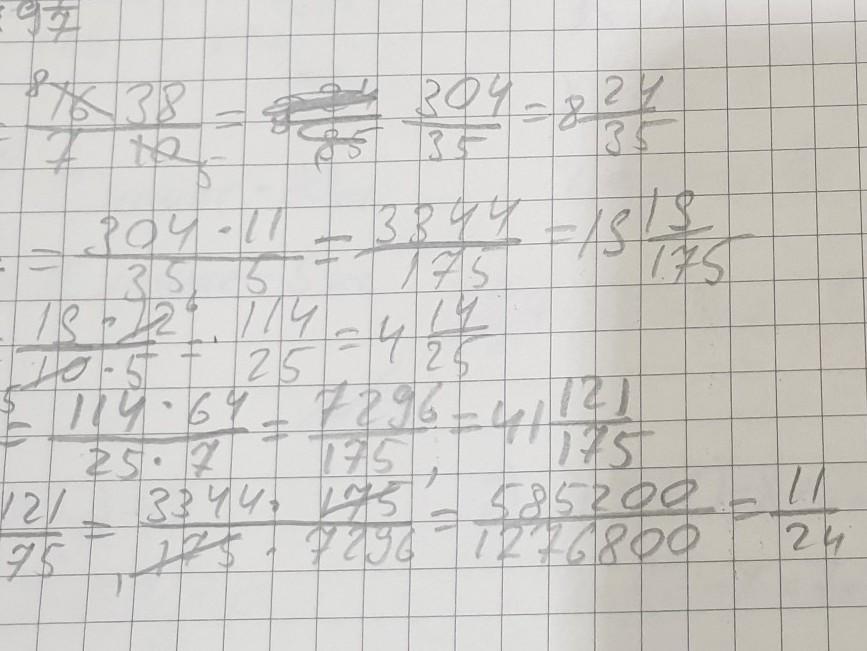 97/7
= 8 16 38 / 7 10 5 = 304/35 = 8 24/35
= 304 · 11 / 35 5 = 3344/175 = 19 19/175
= 19 · 12 6 / 10 · 5 = 114/25 = 4 14/25
= 114 · 64 / 25 · 7 = 7296/175 = 41 121/175
121/75 = 3344 · 175 / 175 · 7296 = 585200/1276800 = 11/24